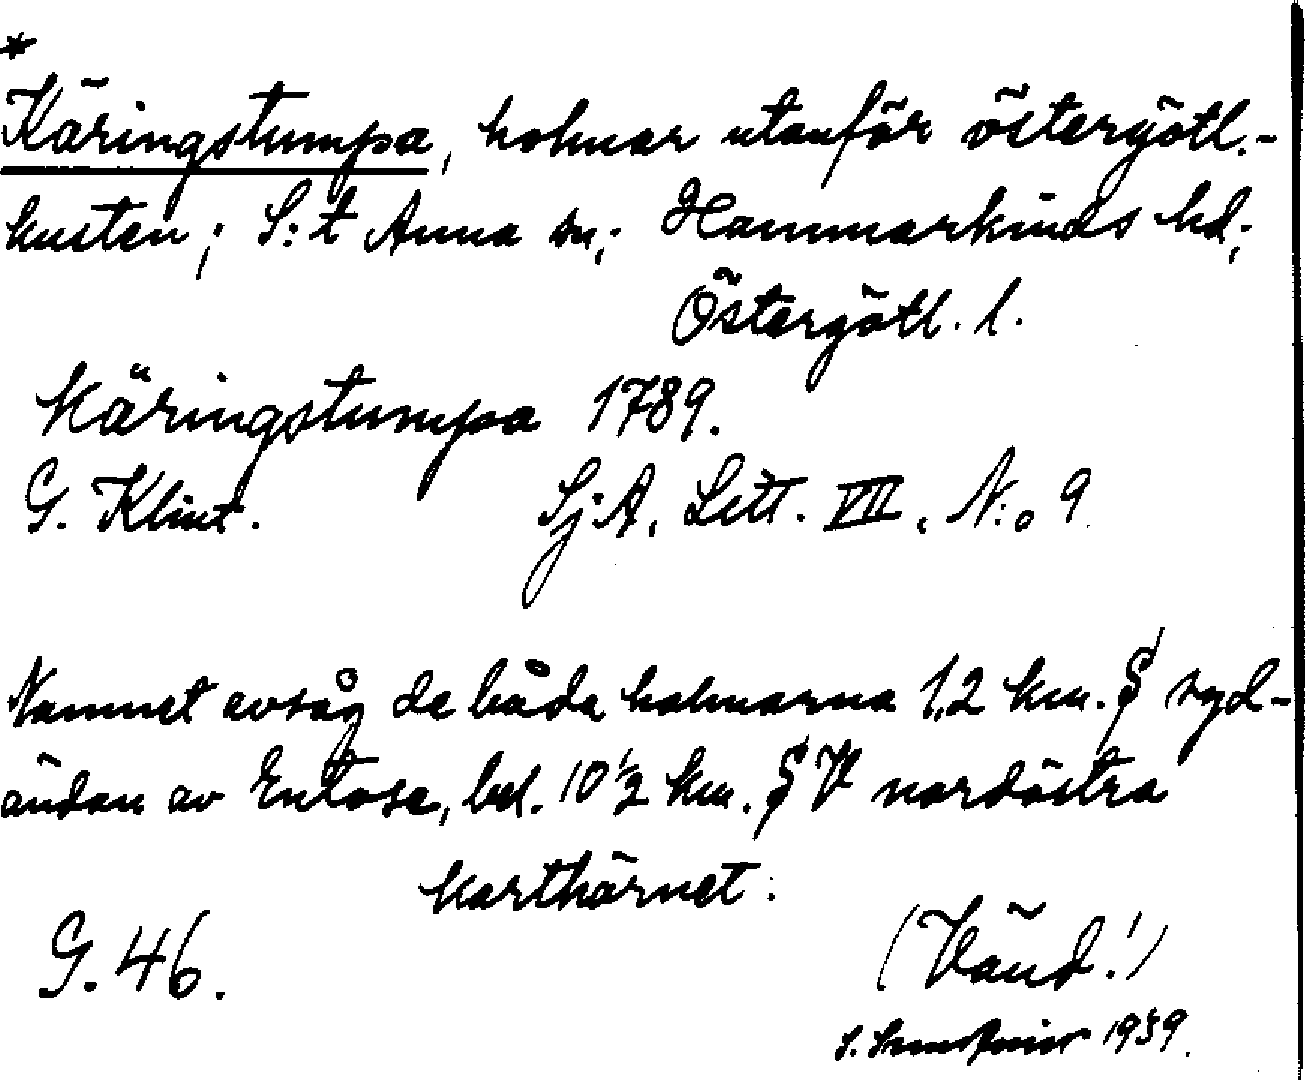 *
Käringstumpa, holmar utanför östergötl.-
kusten; S:t Anna sn; Hammarkinds hd;
Östergötl. l.
Käringstumpa 1789.
G. Klint. Sj:A. Litt. VII. N:o 9.
Namnet avsåg de båda holmarna 1,2 km. S syd-
ändan av Entose, bel. 10 1/2 km. SV nordöstra
karthörnet.
G. 46.
(Vänd!)
S. 1939.